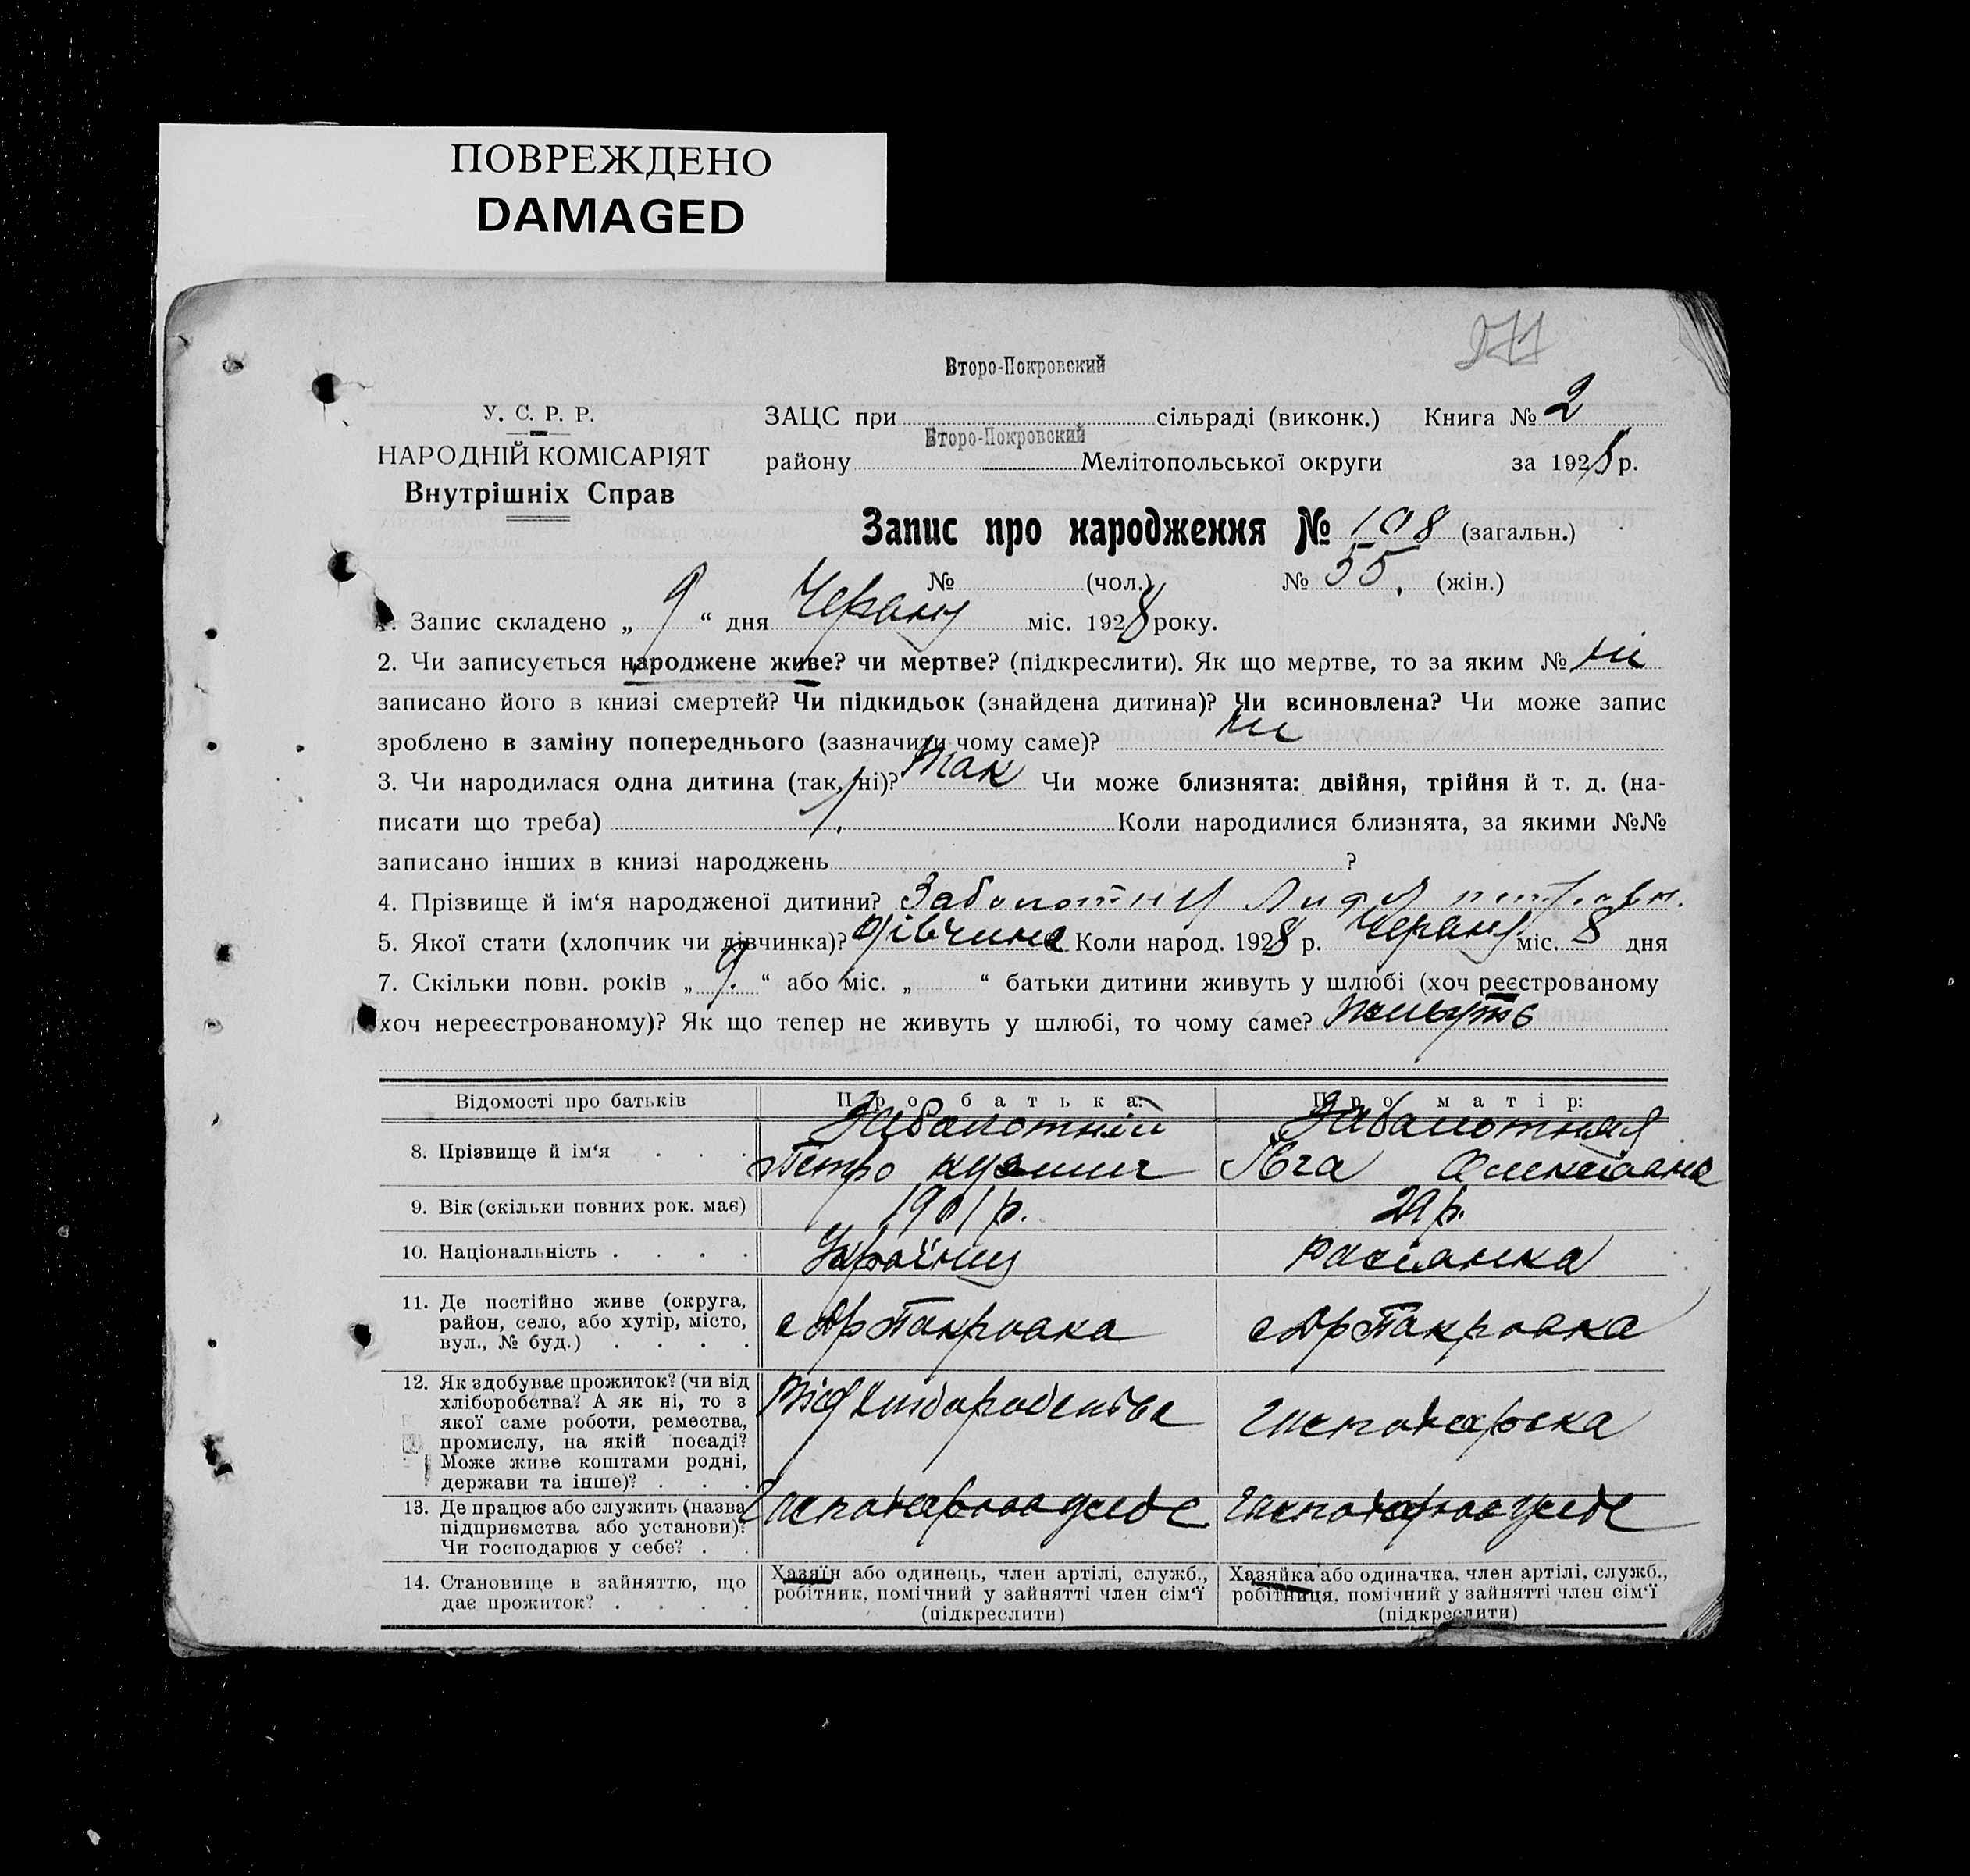 ПОВРЕЖДЕНО
DAMAGED
271
Второ-Покровский
У. С. Р. Р.
ЗАЦС при сільраді (виконк.) Книга № 2
Второ-Покровский
НАРОДНІЙ КОМІСАРІЯТ
району Мелітопольської округи за 1928 р.
Внутрішніх Справ
Запис про народження № 108 (загальн.)
№ (чол.) № 55 (жін.)
1. Запис складено „ 9 “ дня Червня міс. 1928 року.
2. Чи записується народжене живе? чи мертве? (підкреслити). Як що мертве, то за яким № ні
записано його в книзі смертей? Чи підкидьок (знайдена дитина)? Чи всиновлена? Чи може запис
зроблено в заміну попереднього (зазначити чому саме)? ні
3. Чи народилася одна дитина (так, ні)? Так Чи може близнята: двійня, трійня й т. д. (на-
писати що треба) Коли народилися близнята, за якими №№
записано інших в книзі народжень ?
4. Прізвище й ім‘я народженої дитини?
5. Якої стати (хлопчик чи дівчинка)? дівчина Коли народ. 1928 р. Червня міс. 8 дня
7. Скільки повн. років „ 9. “ або міс. „ “ батьки дитини живуть у шлюбі (хоч реєстрованому
хоч нереєстрованому)? Як що тепер не живуть у шлюбі, то чому саме? живуть
Відомості про батьків
Про батька:
Про матір:
8. Прізвище й ім‘я . . .
Заболотній
Петро
Заболотная
9. Вік (скільки повних рок. має)
1901 р.
29 р.
10. Національність . . . .
Українц
Расіянка
11. Де постійно живе (округа,
район, село, або хутір, місто,
вул., № буд.) . . . .
с Др Пакровка
с Др Пакровка
12. Як здобуває прожиток? (чи від
хліборобства? А як ні, то з
якої саме роботи, ремества,
промислу, на якій посаді?
Може живе коштами родні,
держави та інше)? . . .
Від хліборобства
13. Де працює або служить (назва
підприємства або установи)?
Чи господарює у себе? . .
14. Становище в зайняттю, що
дає прожиток? . . . .
Хазяїн або одинець, член артілі, служб.,
робітник, помічний у зайнятті член сім‘ї
(підкреслити)
Хазяйка або одиначка, член артілі, служб.,
робітниця, помічний у зайнятті член сім‘ї
(підкреслити)